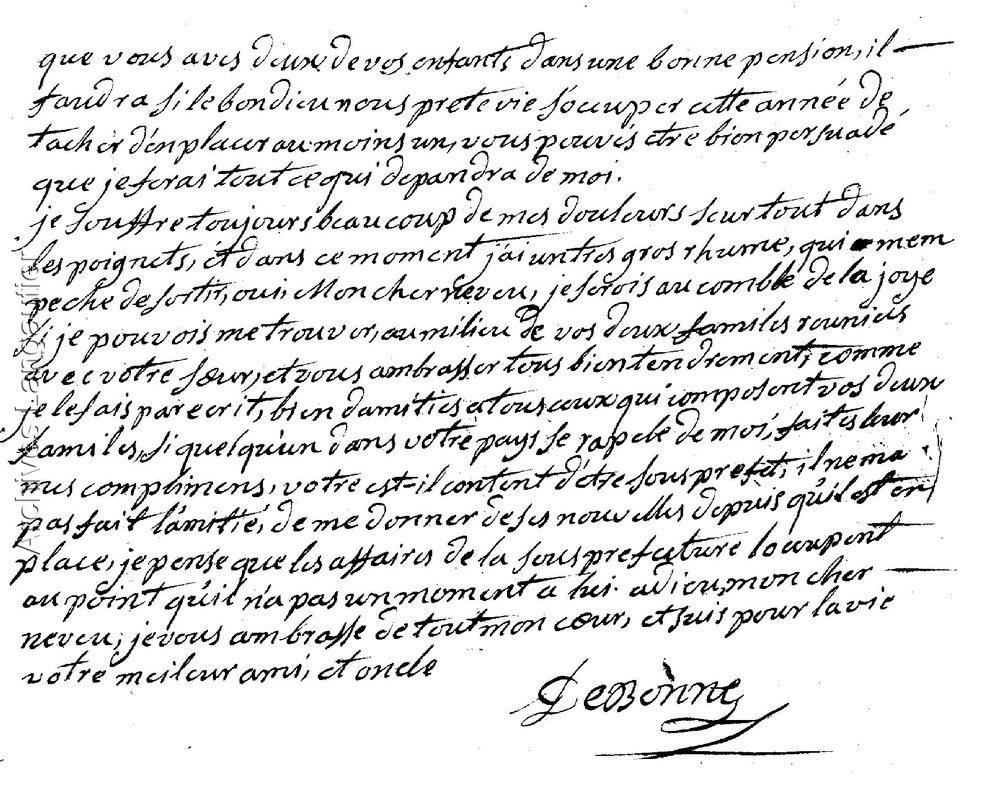 que vous avés deux de vos enfants dans une bonne pension, il
faudra si le bon dieu nous prete vie s'occuper cette année de
tacher d'en placer au moins un, vous pouvés etre bien persuadé
que je ferai tout ce qui depandra de moi.
je souffre toujours beaucoup de mes douleurs seurtout dans
les poignets, et dans ce moment j'ai un tres gros rhume, qui mem
peche de sortir, oui Mon cher neveu, je serois au comble de la joye
si je pouvois me trouver, au milieu de vos deux familes reunies
avec votre sœur, et vous ambrasser tous bien tendrement, comme
je le fais par ecrit, bien damitiés a tous ceux qui composent vos deux
familes, si quelqu'un dans votre pays se rapele de moi, faites leur
mes complimens, votre est-il content d'être sous prefet, il ne ma
pas fait l'amitié, de me donner de ses nouvelles depuis qu'il est en
place, je pense que les affaires de la sous prefecture locupent
au point qu'il n'a pas un moment a lui. adieu, mon cher
neveu, je vous ambrasse de tout mon cœur, et suis pour la vie
votre meileur ami, et oncle
DeBonne